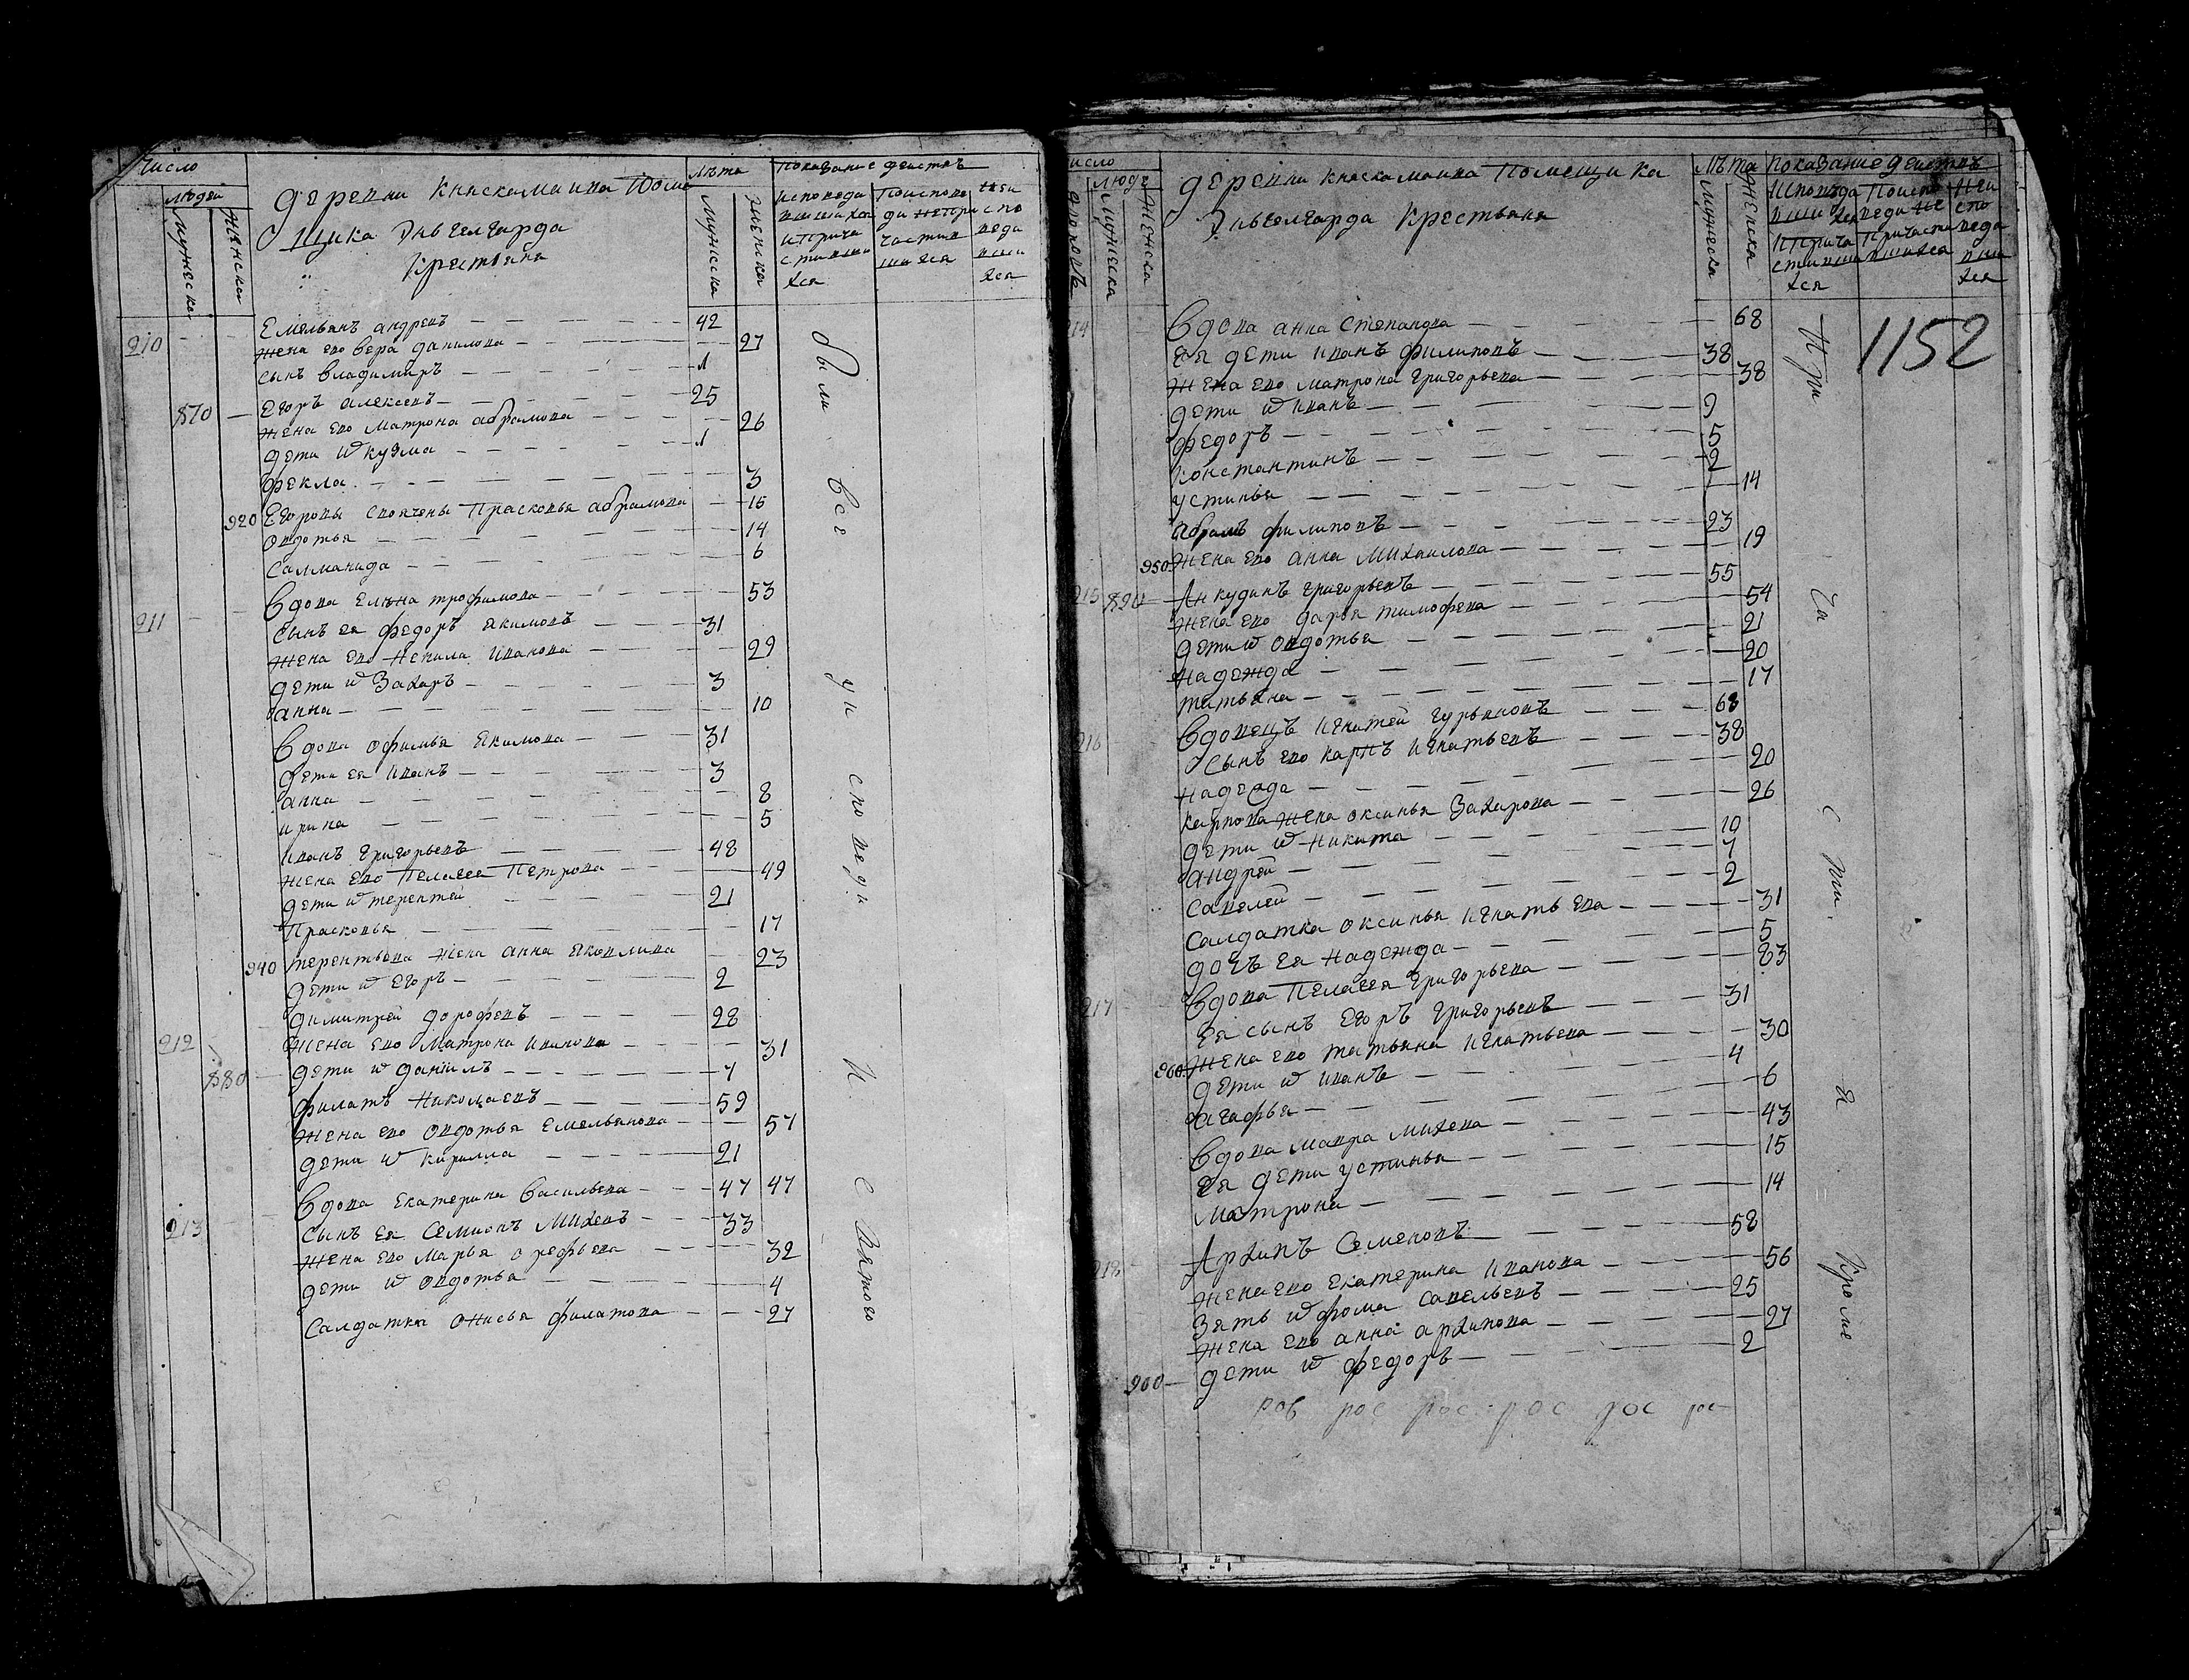 Число
людей
мужеска
женска
деревни Княскамаина Поме
щика Энвгелгарда
Крестьяня
Лѣта
мужеска
женска
показание деиствъ
исповеда
вшихся
и прича
стивши
хся
поиспове
ди непри
частив
шихся
неи
спо
веда
вши
хся
210 Емельянъ андревъ 42
жена ево вера данилова 27
сынъ владимиръ 1
870 Егоръ алексевъ 25
жена ево матрона абрамова 26
дети ѿ кузма 1
фекла 3
920 Егоровы своячены Прасковья абрамова 15
овдотья 14
саломанида 6
211 вдова Елѣна трофимова 53
сынъ ея федоръ якимовъ 31
жена ево ненила иванова 29
дети ѿ захаръ 3
анна 10
вдова офимья якимова 31
дети ея иванъ 3
анна 8
ирина 5
иванъ григорьевъ 48
жена ево пелагея петрова 49
дети ѿ терентей 21
Прасковья 17
940 терентьева жена анна яковлива 23
дети ѿ егоръ 2
димитрей дорофевъ 28
212 жена ево матрона иванова 31
880 дети ѿ даниилъ 7
филатъ николаевъ 59
жена ево овдотья емельянова 57
дети ѿ кирилла 21
вдова екатерина васильева 47 47
213 сынъ ея семионъ михевъ 33
жена ево марья орефьева 32
дети ѿ овдотья 4
салдатка онисья филатова 27
были все у исповеди и с Вятого
число
дворовъ
людей
мужеска
женска
деревни княскамаина Помещика
Энвгелгарда Крестьяня
Лѣта
мужеска
женска
показание деиствъ
исповеда
вшихся
и прича
стивши
хся
поиспо
веди не
причасти
вшихся
неи
спо
веда
вши
хся
1152
214 вдова анна степанова 68
ея дети иванъ филиповъ 38
жена ево матрона григорьева 38
дети ѿ иванъ 9
федоръ 5
константинъ 2
устинья 14
абрамъ филиповъ 23
950 жена ево анна михаилова 19
215 890 Анкудинъ григорьевъ 55
жена ево дарья тимофева 54
дети ѿ овдотья 21
надежда 20
татьяна 17
216 вдовецъ игнатей гурьяновъ 68
сынъ ево карпъ игнатьевъ 38
надежда 20
карпова жена оксинья захарова 26
дети ѿ никита 10
андрей 7
савелей 2
салдатка оксинья игнатьева 31
дочь ея надежда 5
217 вдова пелагея григорьева 83
ея сынъ егоръ григорьевъ 31
960 жена ево татьяна игнатьева 30
дети ѿ иванъ 4
агафья 6
вдова мавра михева 43
ея дети устинья 15
матрона 14
218 Архипъ семеновъ 58
жена ево екатерина иванова 56
зять ѿ фома савельевъ 25
жена ево анна архипова 27
900 дети ѿ федоръ 2
рос рос рос рос рос
При ча сти. я Кроме